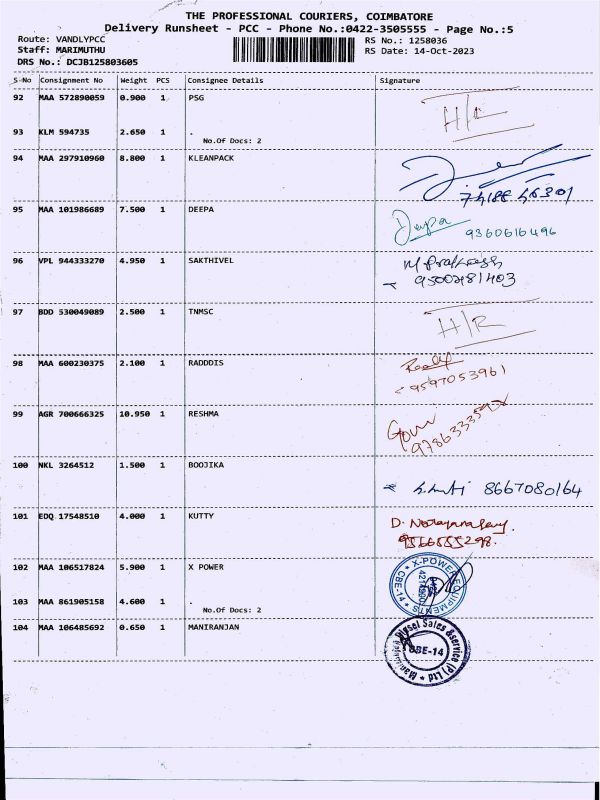 THE PROFESSIONAL COURIERS, COIMBATORE
Delivery Runsheet - PCC - Phone No.:0422-3505555 - Page No.:5
Route: VANDLYPCC
RS No.: 1258036
Staff: MARIMUTHU
RS Date: 14-Oct-2023
DRS No.: DCJB125803605
S-No Consignment No Weight PCS Consignee Details Signature
92 MAA 572890059 0.900 1 PSG H/R
93 KLM 594735 2.650 1 .
No.Of Docs: 2
94 MAA 297910960 8.800 1 KLEANPACK
95 MAA 101986689 7.500 1 DEEPA Deepa
9360616496
96 VPL 944333270 4.950 1 SAKTHIVEL
9500281403
97 BDD 530049089 2.500 1 TNMSC H/R
98 MAA 600230375 2.100 1 RADDDIS
9597053961
99 AGR 700666325 10.950 1 RESHMA
100 NKL 3264512 1.500 1 BOOJIKA
8667080164
101 EDQ 17548510 4.000 1 KUTTY D.
9566555298.
102 MAA 106517824 5.900 1 X POWER X-POWER EQUIPMENTS CBE-14
103 MAA 861905158 4.600 1 .
No.Of Docs: 2
104 MAA 106485692 0.650 1 MANIRANJAN Maniranjan Diesel Sales &service (P) Ltd CBE-14